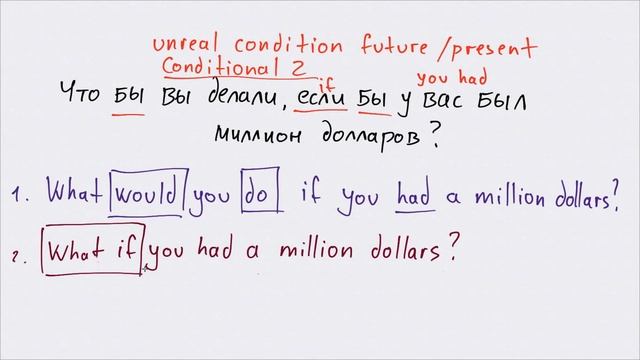 unreal condition future/present
Conditional 2
if you had
Что бы вы делали, если бы у вас был
миллион долларов?
1. What would you do if you had a million dollars?
2. What if you had a million dollars?